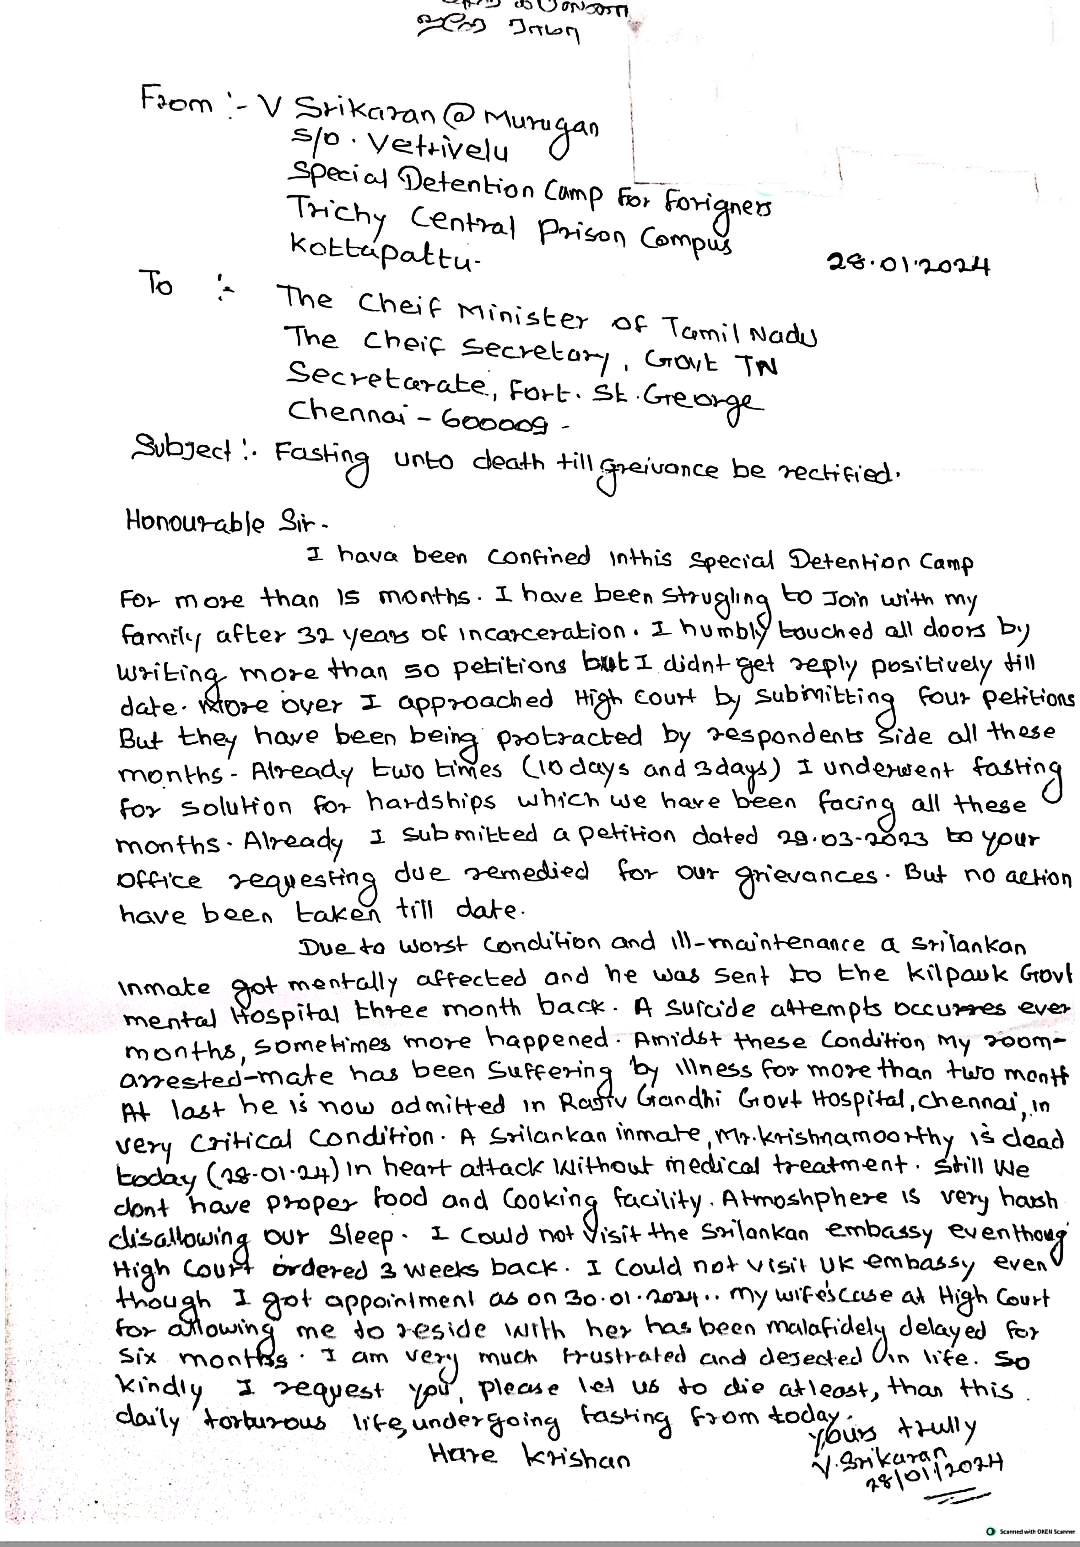 From :- V Srikaran @ Murugan
S/o. Vetrivelu
Special Detention Camp For Forigners
Trichy Central Prison Compus
Kottapattu.
28.01.2024
To :-
The Cheif Minister of Tamil Nadu
The Cheif Secretary, Govt TN
Secretarate, Fort. St. George
Chennai - 600009.
Subject :. Fasting unto death till Greivance be rectified.
Honourable Sir.
I hava been confined inthis Special Detention Camp
For more than 15 months. I have been Strugling to Join with my
family after 32 years of incarceration. I humbly touched all doors by
writing more than 50 petitions but I didnt get reply positively till
date. More over I approached High Court by submitting four petitions
But they have been being protracted by respondents side all these
months. Already two times (10 days and 3 days) I underwent fasting
for solution for hardships which we have been facing all these
months. Already I submitted a petition dated 29.03-2023 to your
office requesting due remedied for our grievances. But no action
have been taken till date.
Due to worst condition and ill-maintenance a srilankan
inmate got mentally affected and he was sent to the kilpauk Govt
mental Hospital three month back. A suicide attempts occurres ever
months, sometimes more happened. Amidst these Condition My room-
arrested-mate has been Suffering by illness for more than two month
At last he is now admitted in Rajiv Gandhi Govt Hospital, chennai, in
very critical condition. A Srilankan inmate, Mr. krishnamoorthy is dead
today (28.01.24) in heart attack without medical treatment. Still We
dont have proper food and Cooking facility. Atmoshphere is very harsh
disallowing our Sleep. I Could not visit the Srilankan embassy eventhoug
High Court ordered 3 weeks back. I Could not visit UK embassy even
though I got appointment as on 30.01.2024.. My wife's case at High Court
for allowing me to reside with her has been malafidely delayed for
six months. I am very much frustrated and dejected in life. So
kindly I request you, please let us to die atleast, than this
daily torturous life, undergoing fasting from today.
Yours trully
Hare Krishan
V. Srikaran
28/01/2024
Scanned with OKEN Scanner